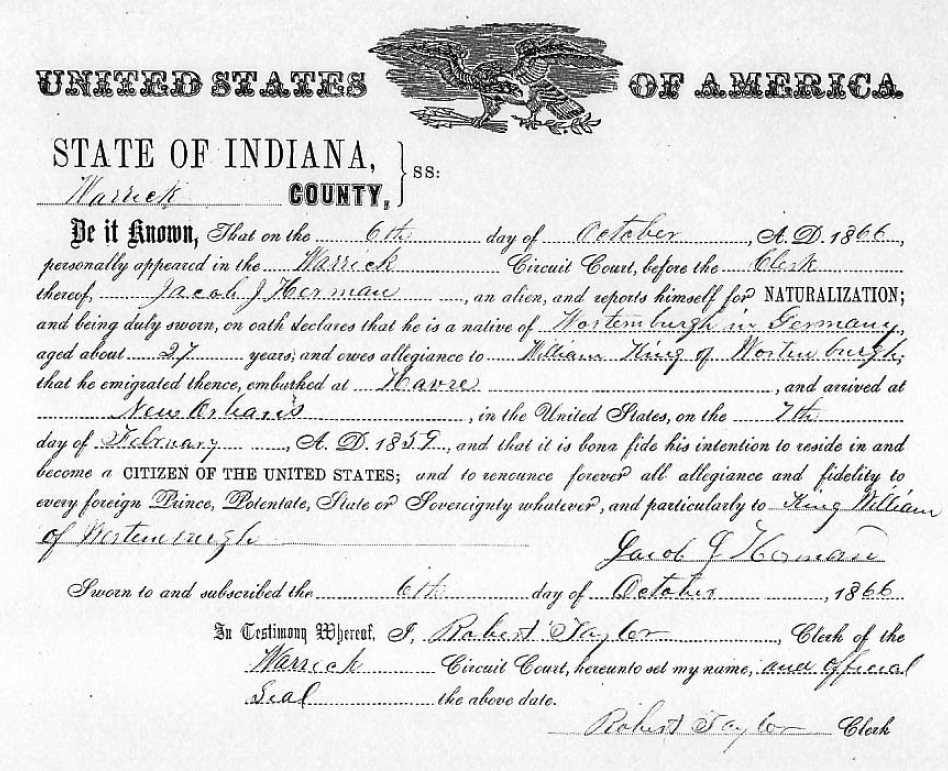 UNITED STATES OF AMERICA
STATE OF INDIANA,
Warrick COUNTY, } SS:
Be it Known, That on the 6th day of October, A. D. 1866,
personally appeared in the Warrick Circuit Court, before the Clerk
thereof, Jacob J Herman, an alien, and reports himself for NATURALIZATION;
and being duly sworn, on oath declares that he is a native of Wortemburgh in Germany,
aged about 27 years, and owes allegiance to William King of Wortemburgh;
that he emigrated thence, embarked at Havre, and arrived at
New Orleans, in the United States, on the 7th
day of February, A. D. 1859, and that it is bona fide his intention to reside in and
become a CITIZEN OF THE UNITED STATES; and to renounce forever all allegiance and fidelity to
every foreign Prince, Potentate, State or Sovereignty whatever, and particularly to King William
of Wortemburgh
Jacob J Herman
Sworn to and subscribed the 6th day of October, 1866
In Testimony Whereof, I, Robert Taylor, Clerk of the
Warrick Circuit Court, hereunto set my name, and official
Seal the above date.
Robert Taylor Clerk